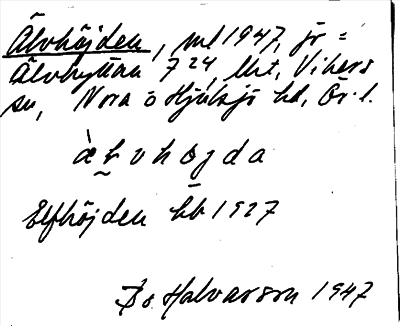 Älvhöjden, ml 1947, jr =
Älvhyttan 7 24, lht, Vikers
sn, Nora o Hjulsjö hd, Ör. l.
Elfhöjden hb 1927
Bo Halvarson 1947